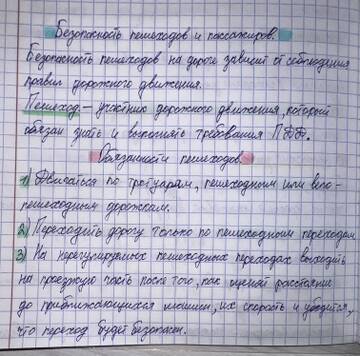 Безопасность пешеходов и пассажиров.
Безопасность пешеходов на дороге зависит от соблюдения
правил дорожного движения.
Пешеход – участник дорожного движения, который
обязан знать и выполнять требования ПДД.
Обязанности пешеходов.
1) Двигаться по тротуарам, пешеходным или вело-
пешеходным дорожкам.
2) Переходить дорогу только по пешеходным переходам
3) На нерегулируемых пешеходных переходах выходить
на проезжую часть после того, как оценят расстояние
до приближающихся машин, их скорость и убедятся,
что переход будет безопасен.